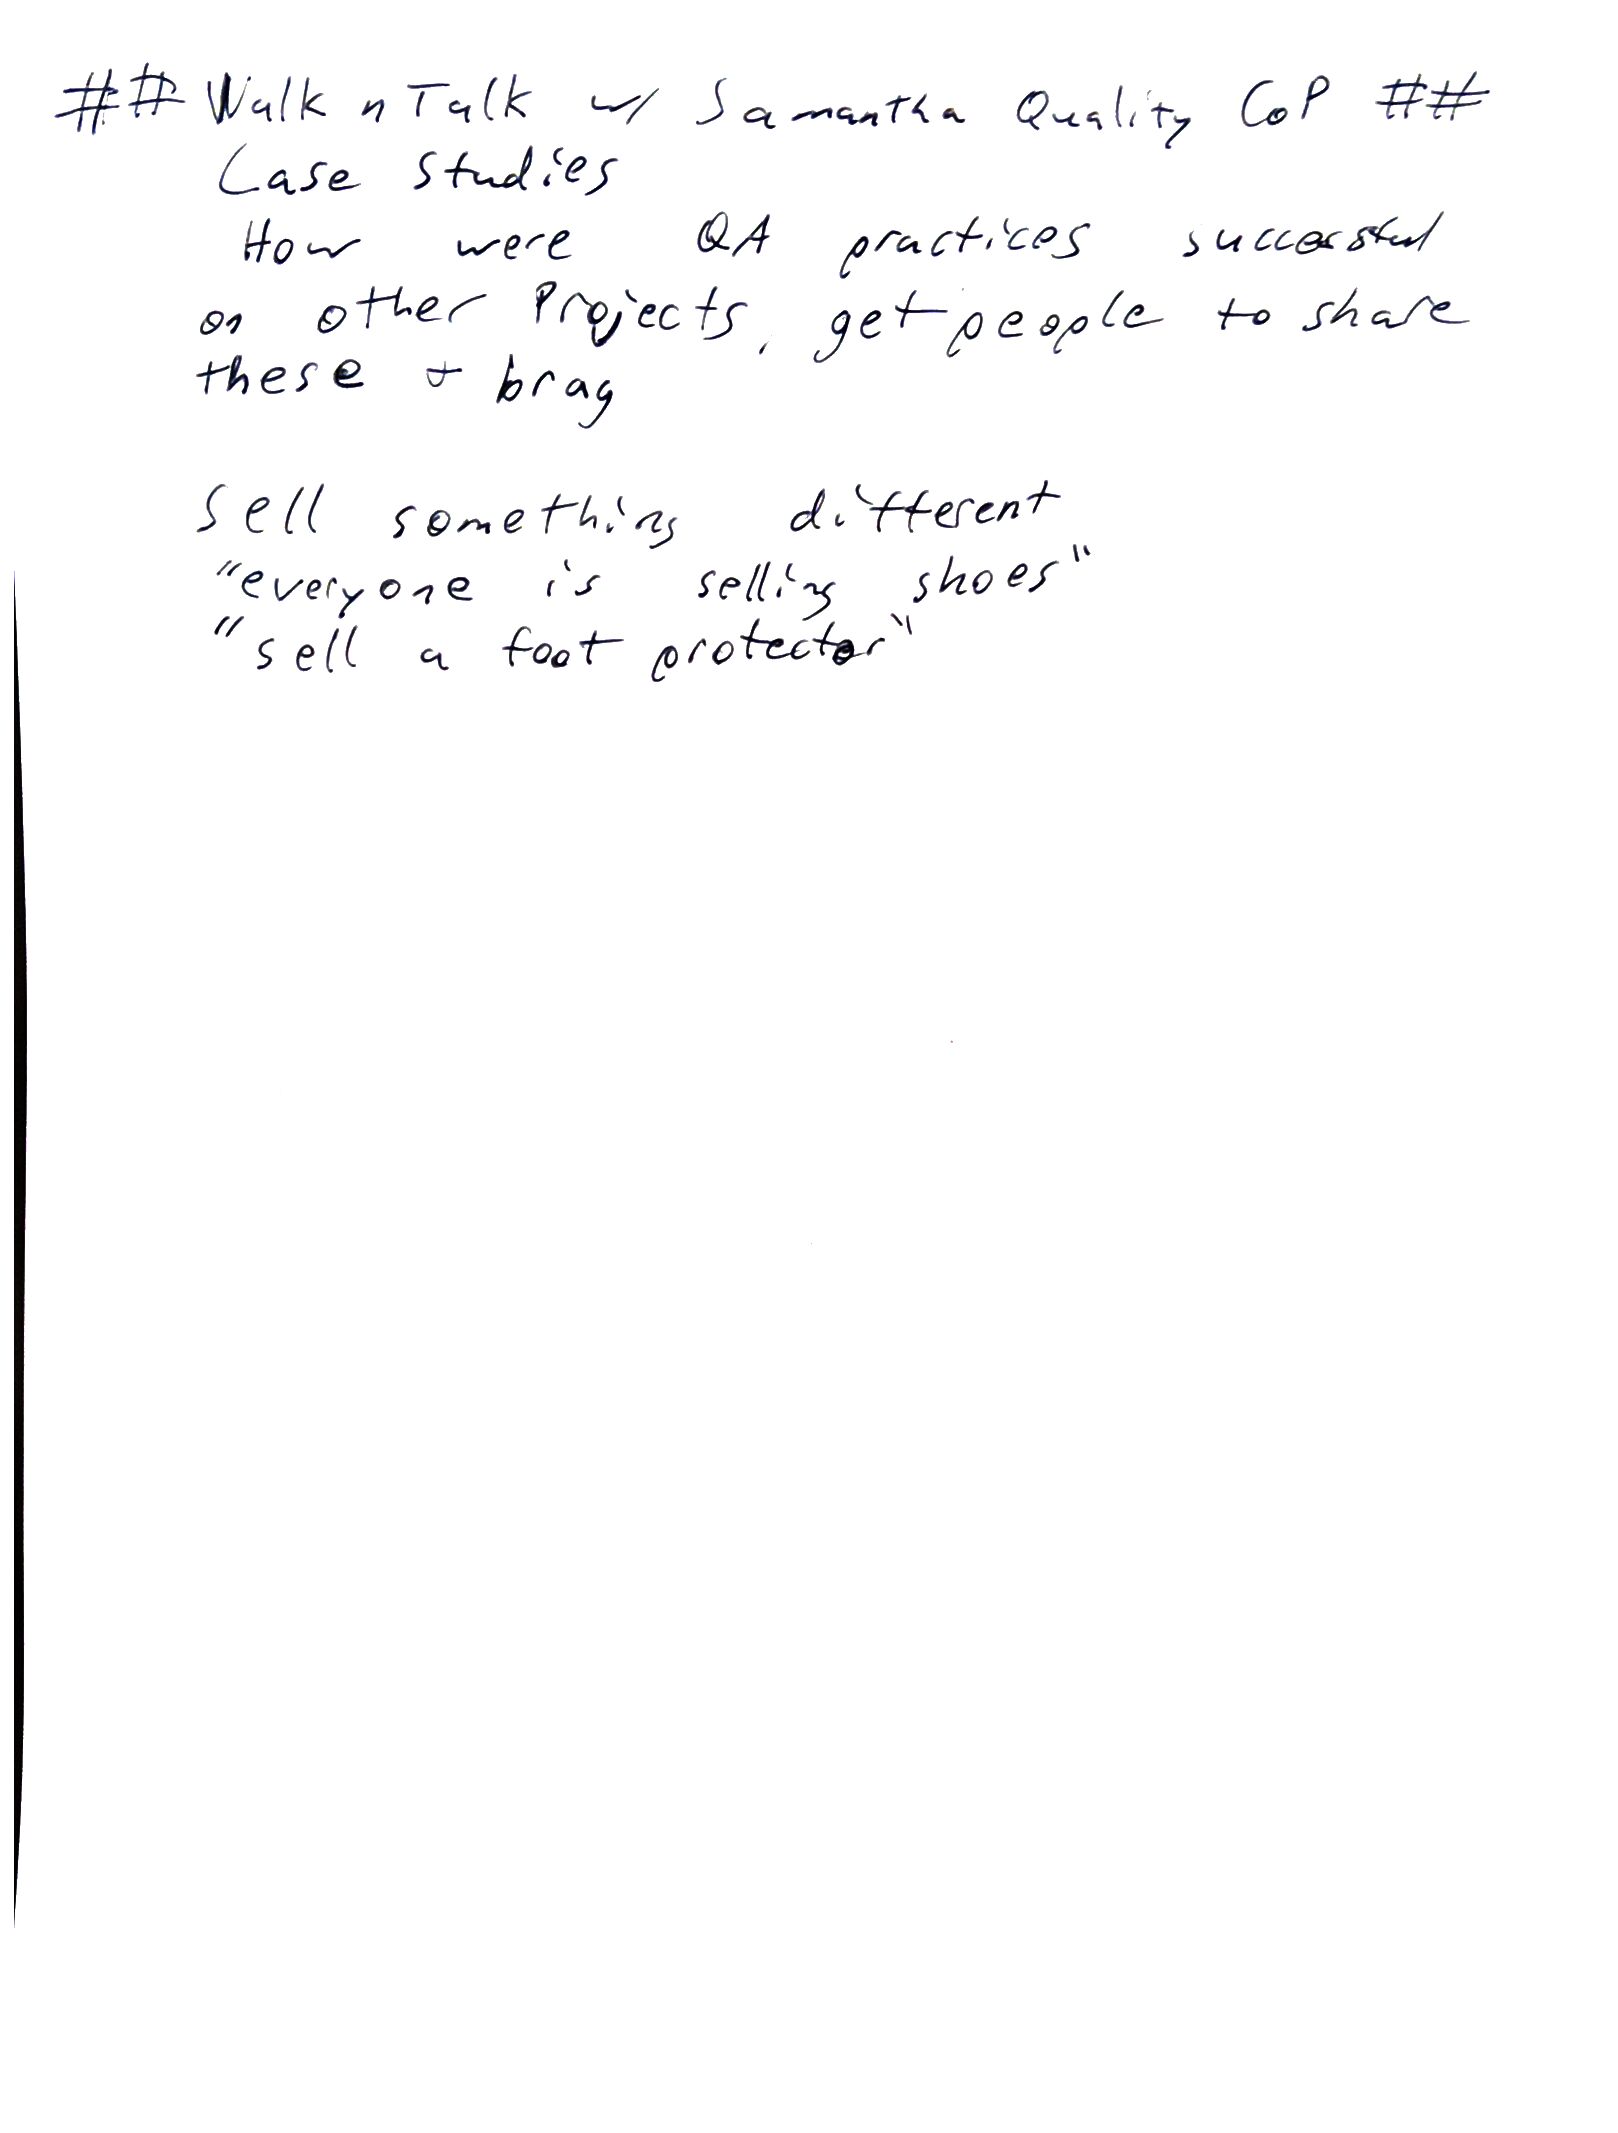 ## Walk n Talk w/ Samantha Quality CoP ##
Case Studies
How were QA practices successful
on other Projects, get people to share
these + brag
Sell something different
"everyone is selling shoes"
"sell a foot protector"